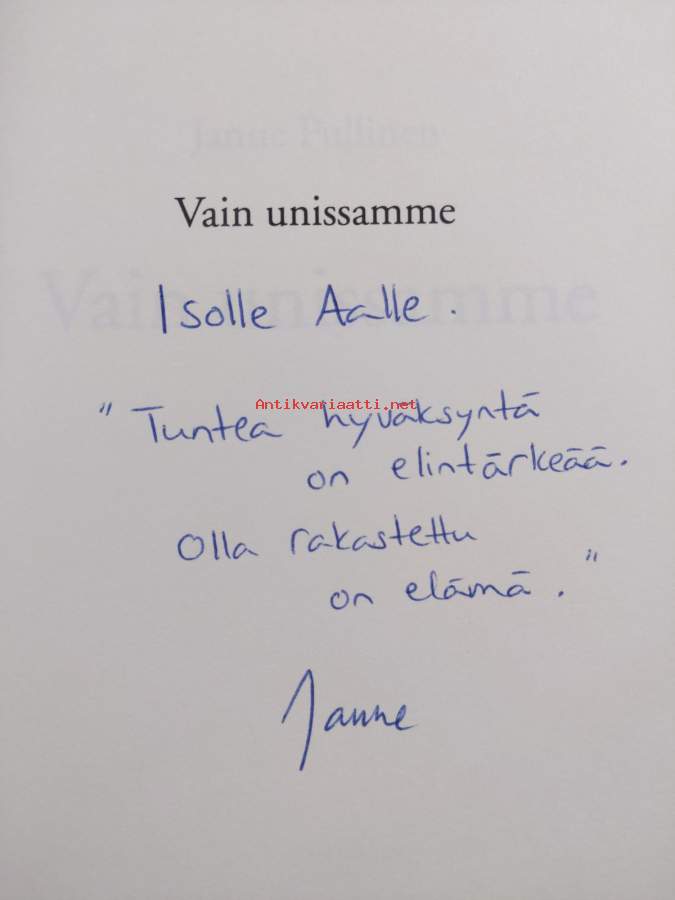 Janne Pullinen
Vain unissamme
Vain unissamme
Isolle Aalle.
Antikvariaatti.net
"Tuntea hyväksyntä
on elintärkeää.
Olla rakastettu
on elämä."
Janne